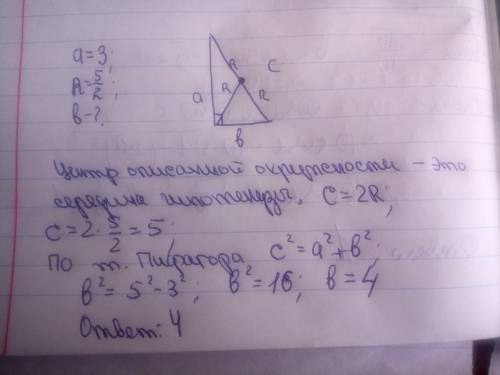 a=3;
R=5/2;
b-?
a
R
R
R
C
b
Центр описанной окружности – это
середина гипотенузы. C=2R;
C=2·5/2=5;
По т. Пифагора c²=a²+b²;
b²=5²-3²; b²=16; b=4
Ответ: 4